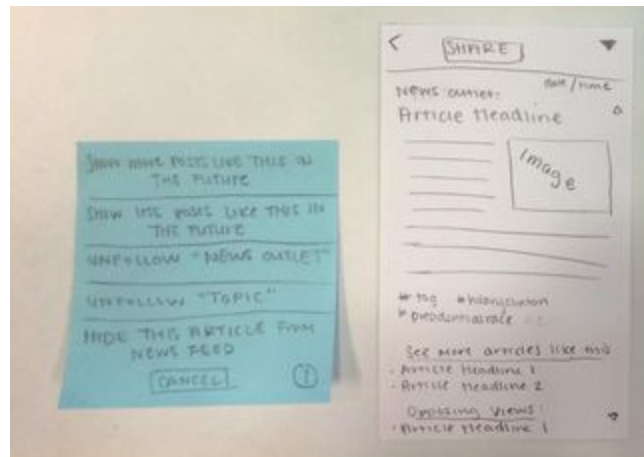 SHOW MORE POSTS LIKE THIS IN
THE FUTURE
SHOW LESS POSTS LIKE THIS IN
THE FUTURE
UNFOLLOW "NEWS OUTLET"
UNFOLLOW "TOPIC"
HIDE THIS ARTICLE FROM
NEWS FEED
CANCEL
<
SHARE
date/time
News outlet:
Article Headline
Image
# tag
See more articles like this
- Article Headline 1
- Article Headline 2
Opposing Views:
- Article Headline 1